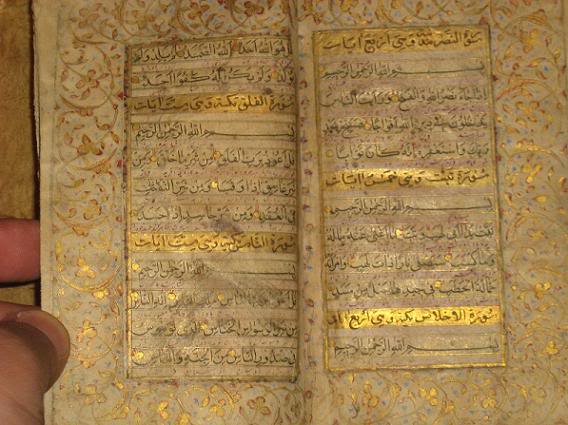 سورة النصر مدنية وهي أربع آيات
بسم الله الرحمن الرحيم
إذا جاء نصر الله والفتح ورأيت الناس
يدخلون في دين الله أفواجا فسبح بحمد
ربك واستغفره إنه كان توابا
سورة تبت وهي خمس آيات
بسم الله الرحمن الرحيم
تبت يدا أبي لهب وتب ما أغنى عنه ماله
وما كسب سيصلى نارا ذات لهب وامرأته
حمالة الحطب في جيدها حبل من مسد
سورة الإخلاص مكية وهي أربع آيات
بسم الله الرحمن الرحيم
قل هو الله أحد الله الصمد لم يلد ولم
يولد ولم يكن له كفوا أحد
سورة الفلق مكية وهي ست آيات
بسم الله الرحمن الرحيم
قل أعوذ برب الفلق من شر ما خلق ومن
شر غاسق إذا وقب ومن شر النفاثات
في العقد ومن شر حاسد إذا حسد
سورة الناس مكية وهي ست آيات
بسم الله الرحمن الرحيم
قل أعوذ برب الناس ملك الناس إله الناس
من شر الوسواس الخناس الذي يوسوس
في صدور الناس من الجنة والناس